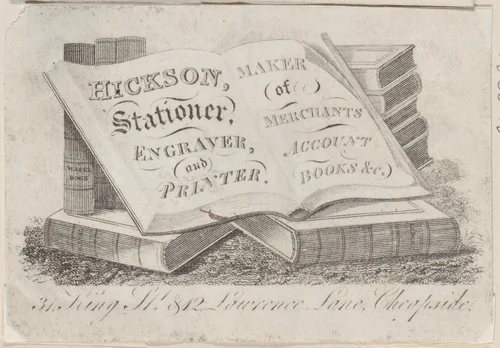 HICKSON,
Stationer,
ENGRAVER,
and
PRINTER.
MAKER
of
MERCHANTS
ACCOUNT
BOOKS &c.
WASTE
BOOK
31, King St. & 12 Lawrence Lane, Cheapside.